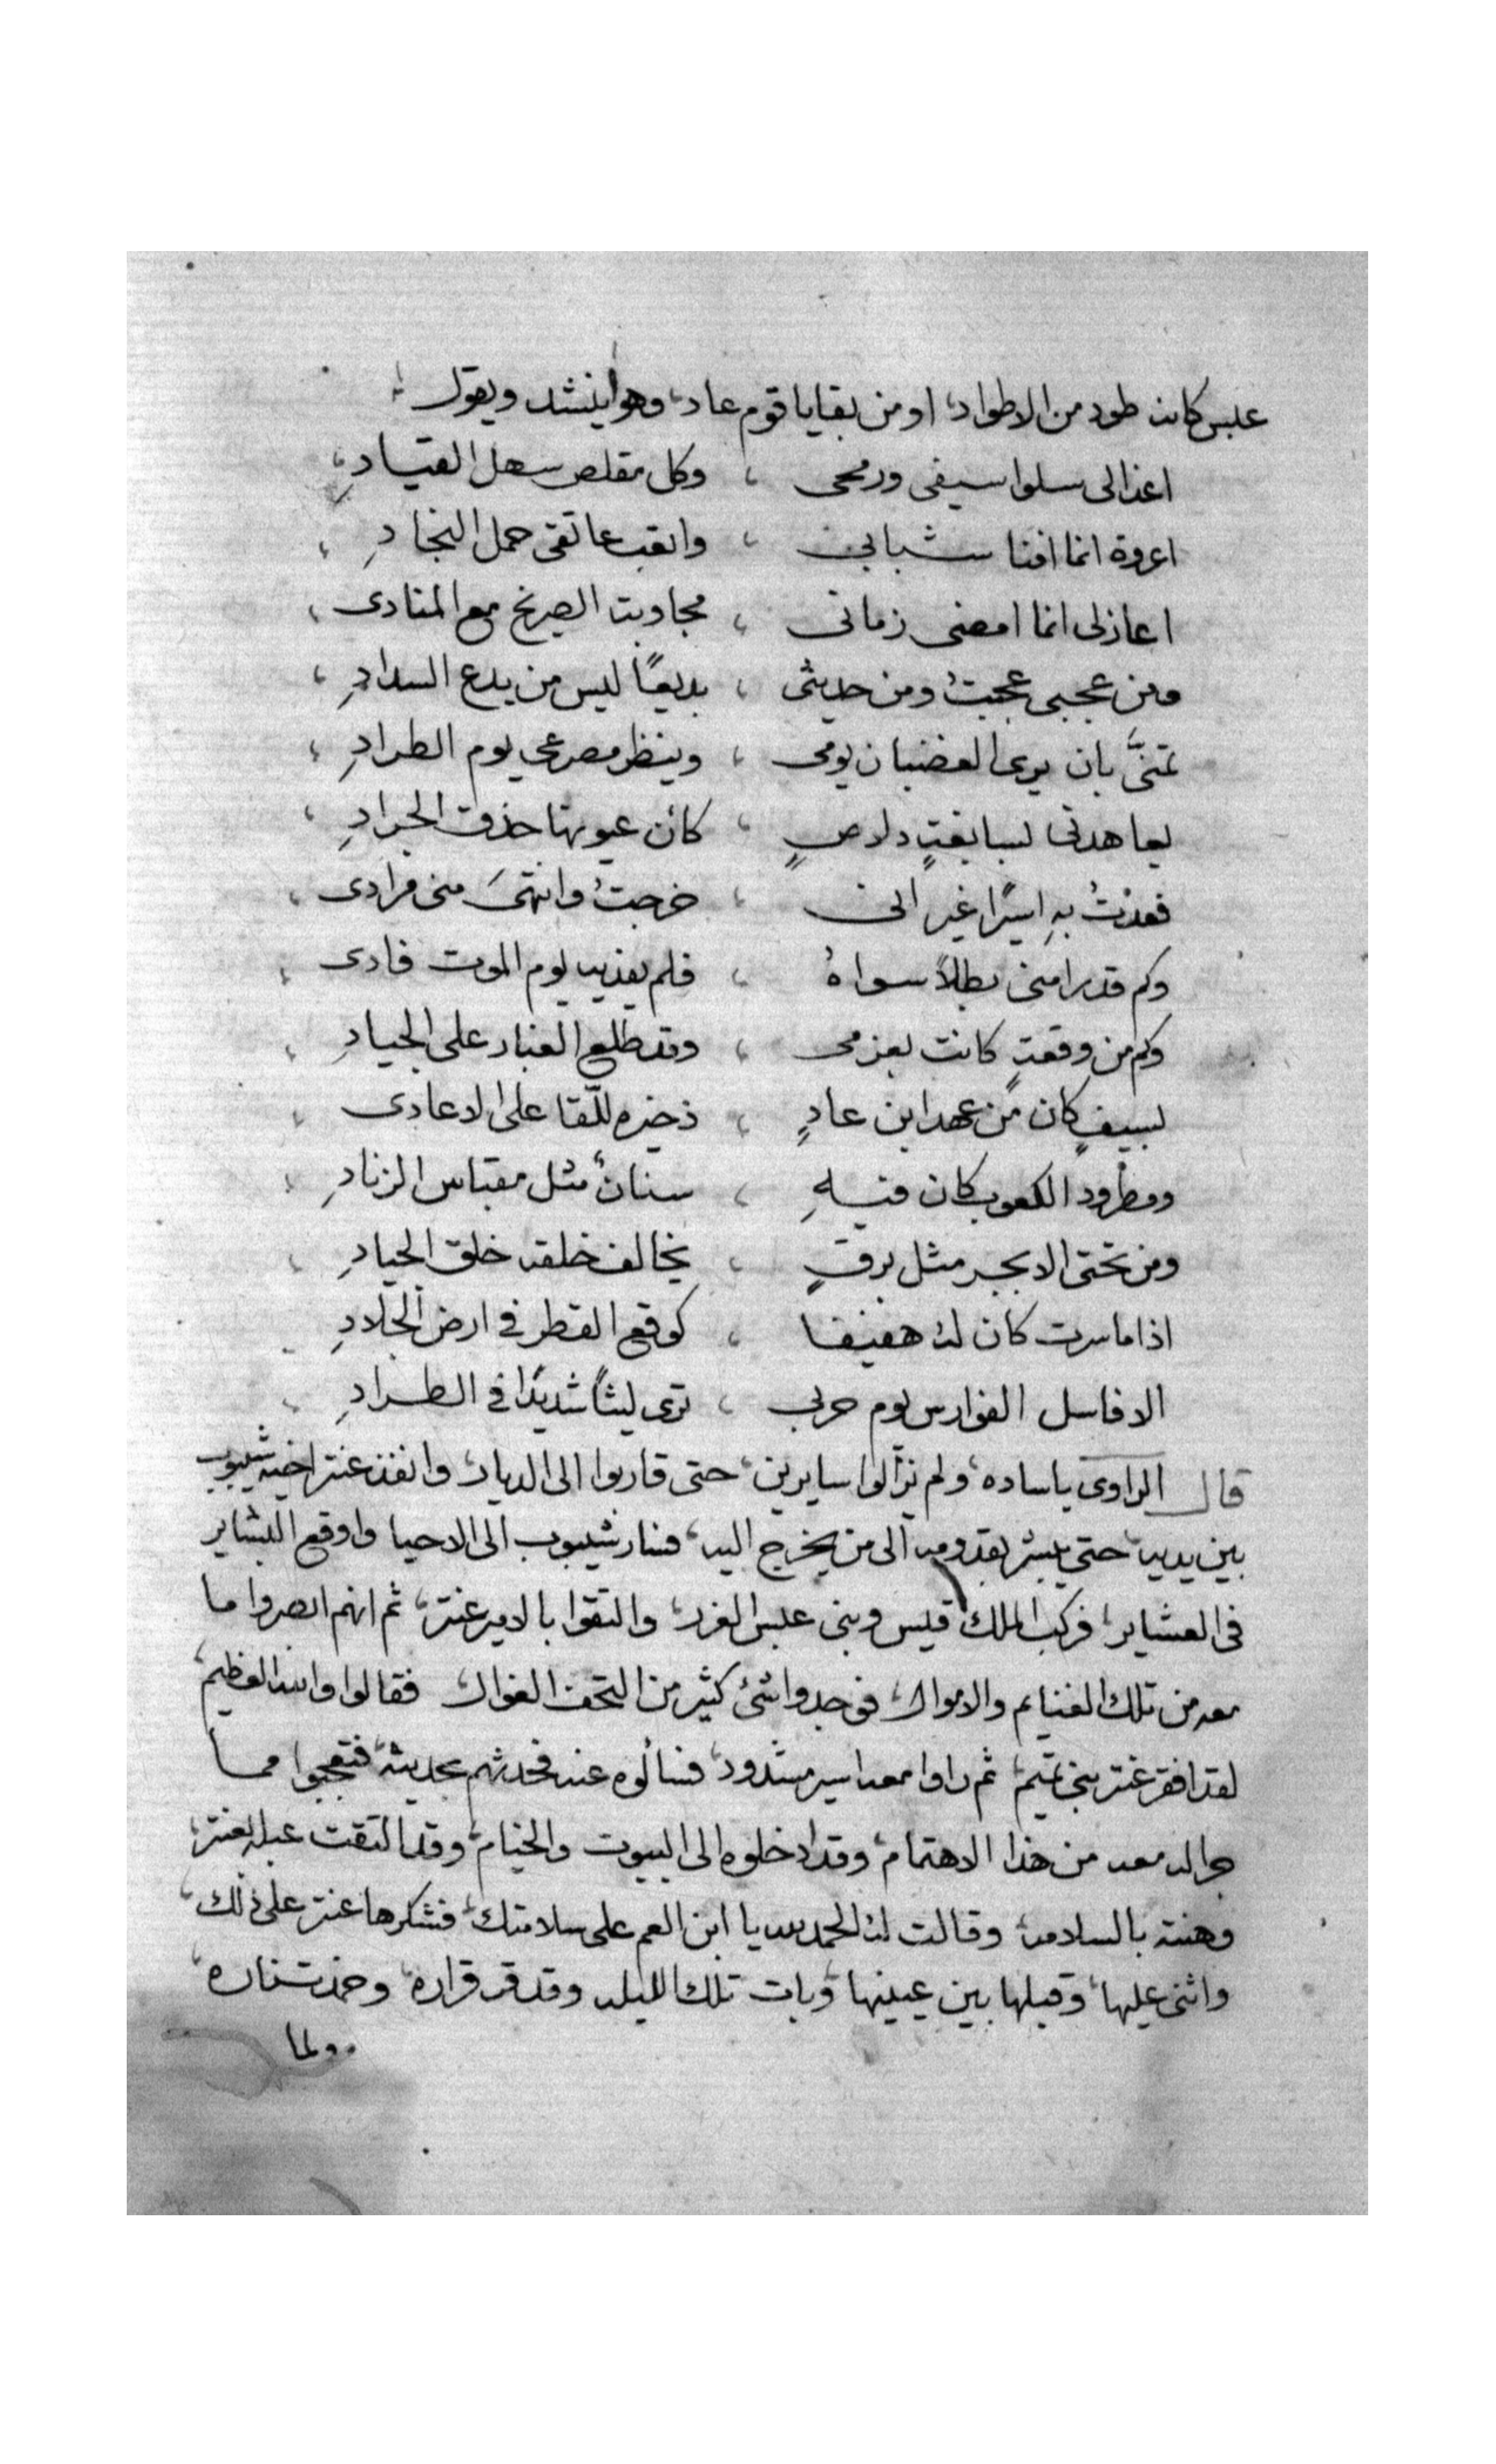 عبس كانه طود من الاطواد، او من بقايا قوم عاد، وهو اينشد ويقول
اعذالى سلوا سيفى ورمحى ، وكل مقلص سهل القيادِ،
اعروة انما افنا شبابى ، واتعب عاتقى حمل النجادِ ،
اعاذلى انما امضى زمانى ، مجاوبة الصريخ مع المنادى ،
ومن عجبى عجبتُ ومن حديثى ، بديعًا ليس من بدع السدادِ ،
تمنَّى بان يرى الغضبان يومى ، وينظر مصرعى يوم الطرادِ ،
يعاهدنى بسابغةٍ دلاصٍ ، كأن عيونها حذق الجرادِ ،
فعدتُ بهِ اسيرًا غير انى ، خرجتُ وانتهىَ منى مرادى ،
وكم قد رامنى بطلاً سواهُ ، فلم يفديه يوم الموت فادى ،
وكم من وقعةٍ كانت بعزمى ، وقد طلع الغبار على الجيادِ ،
بسيفٍ كان من عهد ابن عادٍ ، ذخيره للّقا على الاعادى ،
ومطرود الكعوب كان فيهِ ، سنانٌ مثل مقباس الزنادِ ،
ومن تحتى الابجر مثل برقٍ ، يخالف خلقه خلق الجيادِ ،
اذا ما سرت كان له هفيفا ، كوقع القطر فى ارض الجلادِ
الا فاسل الفوارس يوم حربى ، ترى ليثًا شديدًا فى الطرادِ
قال الراوى ياساده، ولم يزالوا سايرين، حتى قاربوا الى الديار، وانفذ عنتر اخيه شيبوب
بين يديه، حتى يبشر بقدومه الى من يخرج اليه، فسار شيبوب الى الاحيا واوقع البشاير
فى العشاير، فركب الملك قيس وبنى عبس الغرر، والتقوا بالامير عنتر، ثم انهم ابصروا ما
معه من تلك الغنايم والاموال، فوجدوا شئ كثير من التحف الغوال، فقالوا والله العظيم،
لقد افقر عنتر بنى تميم، ثم راوا معه اسير مشدود، فسألوه عنه فحدثهم بحديثه، فتعجبوا مما
جرا له معه من هذا الاهتمام، وقد ادخلوه الى البيوت والخيام، وقد التقت عبله بعنتر،
وهنته بالسلامه، وقالت له الحمد لله يا ابن العم على سلامتك، فشكرها عنتر على ذلك،
واثنى عليها، وقبلها بين عينيها، وبات تلك الليله وقد قر قراره، وخمدت ناره،
ولما